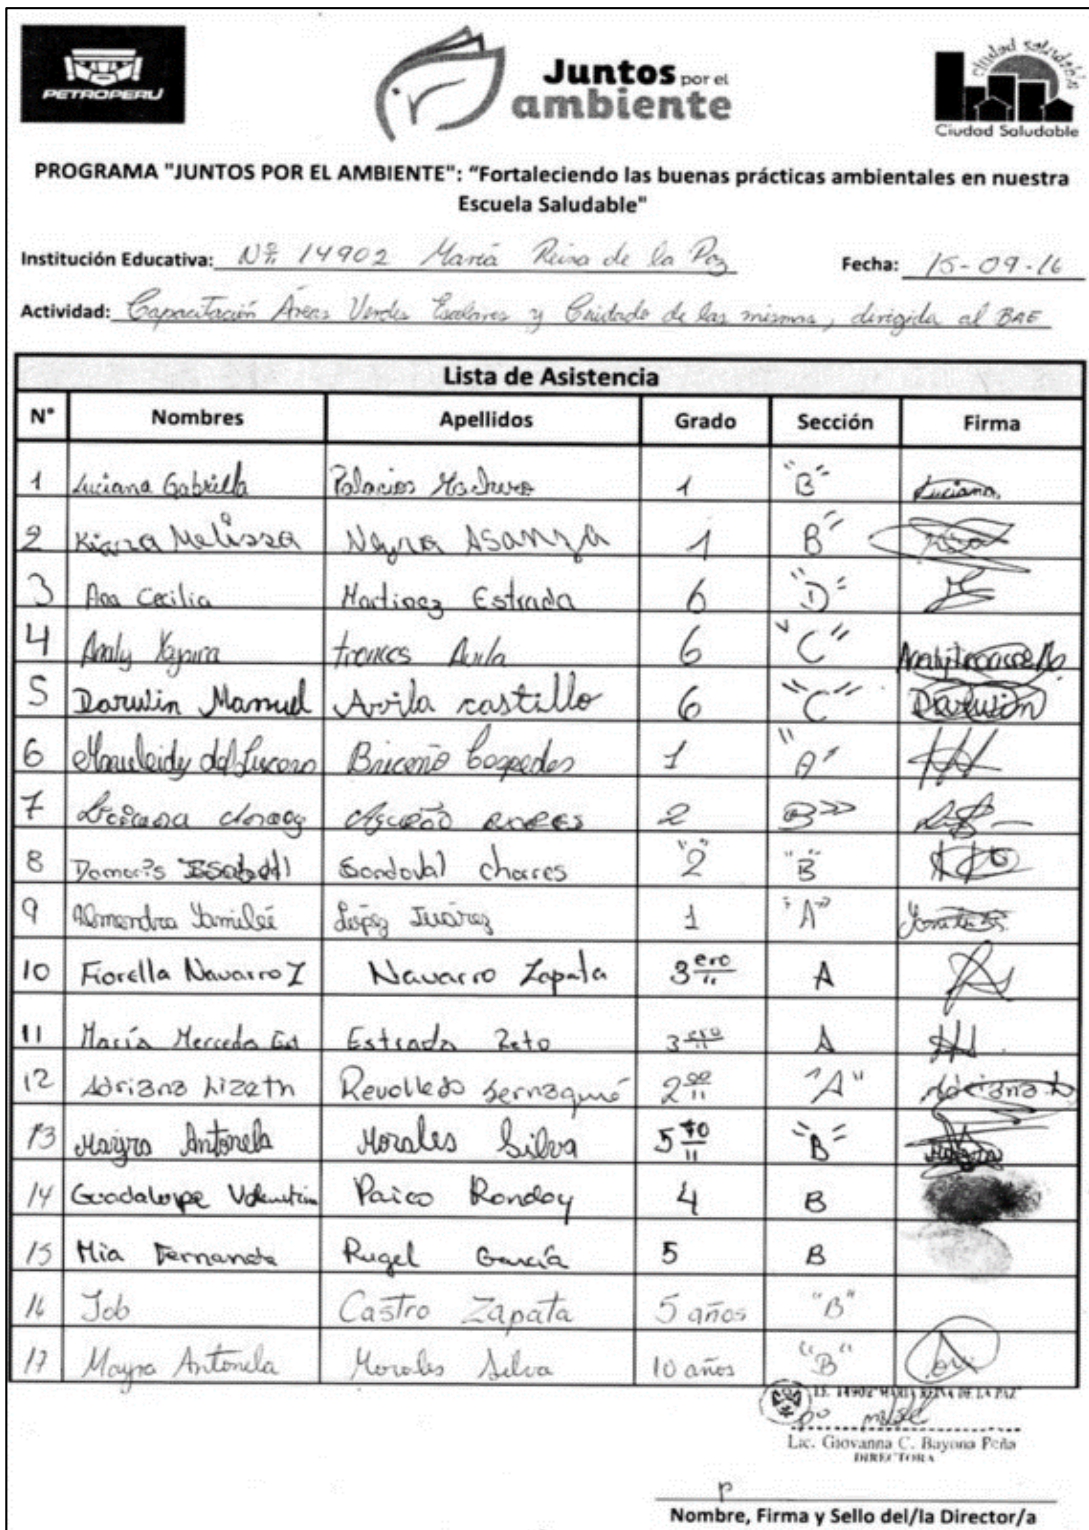 PETROPERU
Juntos por el
ambiente
ciudad saludable
Ciudad Saludable
PROGRAMA "JUNTOS POR EL AMBIENTE": “Fortaleciendo las buenas prácticas ambientales en nuestra
Escuela Saludable"
Institución Educativa: Nº 14902 María Reina de la Paz Fecha: 15-09-16
Actividad: Capacitación Áreas Verdes Escolares y Cuidado de las mismas, dirigida al BAE
Lista de Asistencia
N° Nombres Apellidos Grado Sección Firma
1 Luciana Gabriella Palacios 1 "B" Luciana
2 Kiara Melissa Neyra Asanza 1 B"
3 Ana Cecilia Martinez Estrada 6 "D"
4 Analy Avila 6 "C"
5 Darwin Manuel Avila castillo 6 "C" Darwin
6 Briceño Cespedes 1 "A"
7 2 B"
8 Damaris Sandoval 2 "B"
9 Almendra Yamileé López Juárez 1 "A"
10 Fiorella Navarro Z Navarro Zapata 3ero A
11 María Mercedes Est Estrada Zeto 3ero A
12 Adriana Lizeth Revolledo Sernaqué 2do "A" Adriana
13 Mayra Antonela Morales Silva 5to "B"
14 Guadalupe Valentin Paico Rondoy 4 B
15 Mia Fernanda Rugel García 5 B
16 Job Castro Zapata 5 años "B"
17 Mayra Antonela Morales Silva 10 años "B"
I.E. 14902 "MARIA REINA DE LA PAZ"
Lic. Giovanna C. Bayona Peña
DIRECTORA
Nombre, Firma y Sello del/la Director/a